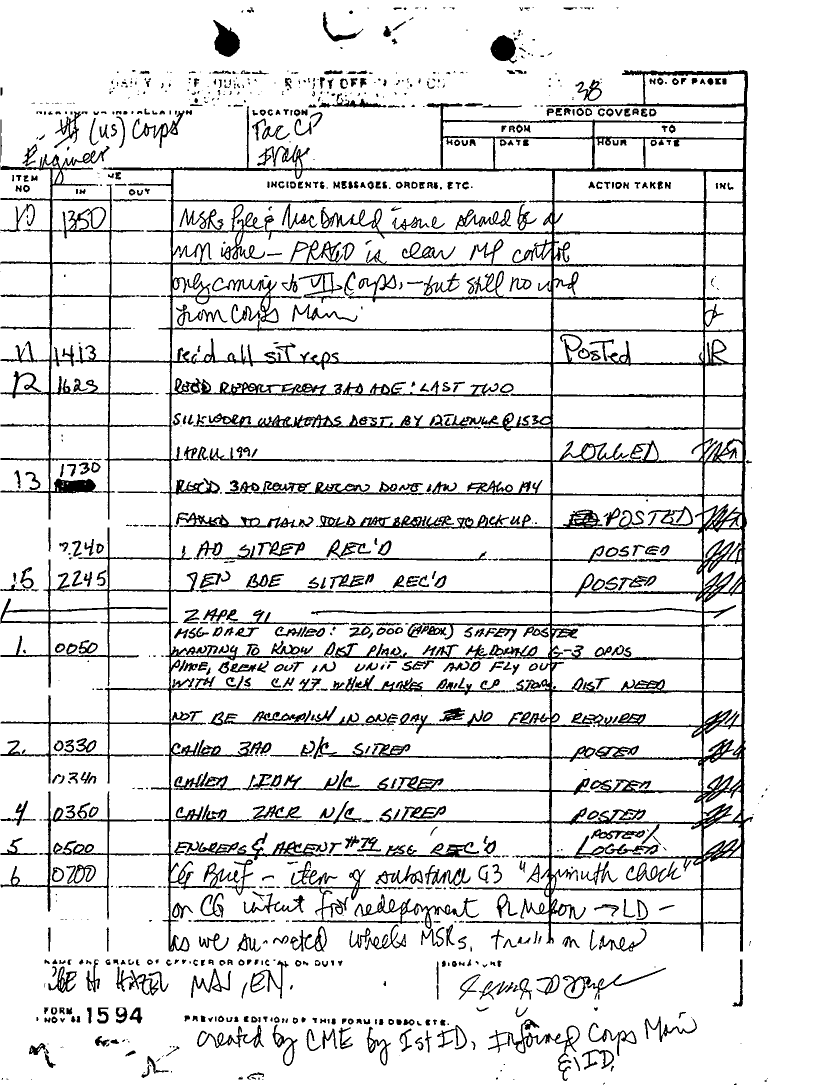 38
NO. OF PAGES
LOCATION
PERIOD COVERED
VII (US) Corps
Engineer
Tac CP
Iraq
FROM
TO
HOUR DATE HOUR DATE
ITEM NO IN OUT INCIDENTS, MESSAGES, ORDERS, ETC. ACTION TAKEN INL
10 1350 MSRs Pyle & MacDonald issue should be a
non issue — FRAGO is clear MP control
only coming to VII Corps, — but still no word
from Corps Main
11 1413 rec'd all sitreps Posted JR
12 1625 REC'D REPORT FROM 3AD ADE: LAST TWO
SILKWORM WARHEADS DEST. BY @ 1530
1 APRIL 1991 LOGGED
13 1730 REC'D 3AD ROUTE RECON DONE IAW FRAGO 174
FAXED TO MAIN TOLD MAJ TO PICK UP. POSTED
2240 1 AD SITREP REC'D POSTED
15 2245 7 EN BDE SITREP REC'D POSTED
2 APR 91
1. 0050 MSG DART CALLED: 20,000 (APROX) SAFETY POSTER
WANTING TO KNOW DIST PLAN. MAJ McDONALD G-3 OPNS
PLANE, BREAK OUT IN UNIT SET AND FLY OUT
WITH C/S CH 47 WHEN MAKES DAILY CP STOPS. DIST NEED
NOT BE ACCOMPLISH IN ONE DAY NO FRAGO REQUIRED
2. 0330 CALLED 3AD N/C SITREP POSTED
0340 CALLED 1 ID M N/C SITREP POSTED
4 0350 CALLED 2ACR N/C SITREP POSTED
5 0500 ENGREPS & ARCENT #79 MSG REC'D POSTED/ LOGGED
6 0700 CG Brief — item of substance G3 "Azimuth check"
on CG intent for redeployment PL Melon → LD —
as we wheels MSRs, on lanes
NAME AND GRADE OF OFFICER OR OFFICIAL ON DUTY
SIGNATURE
HAZEL MAJ, EN.
FORM
1 NOV 62 1594
PREVIOUS EDITION OF THIS FORM IS OBSOLETE.
created by CME by 1st ID, Informed Corps Main
& 1ID.